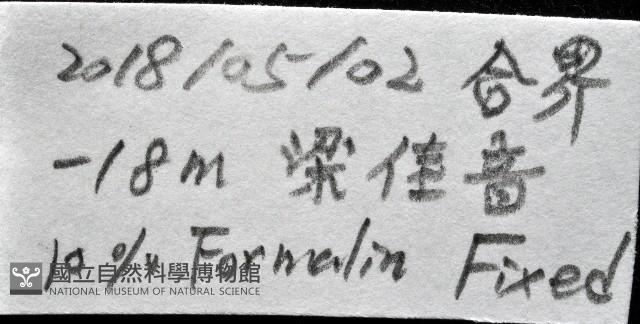 2018/05/02 合界
-18m 梁佳音
10% Formalin Fixed
國立自然科學博物館
NATIONAL MUSEUM OF NATURAL SCIENCE